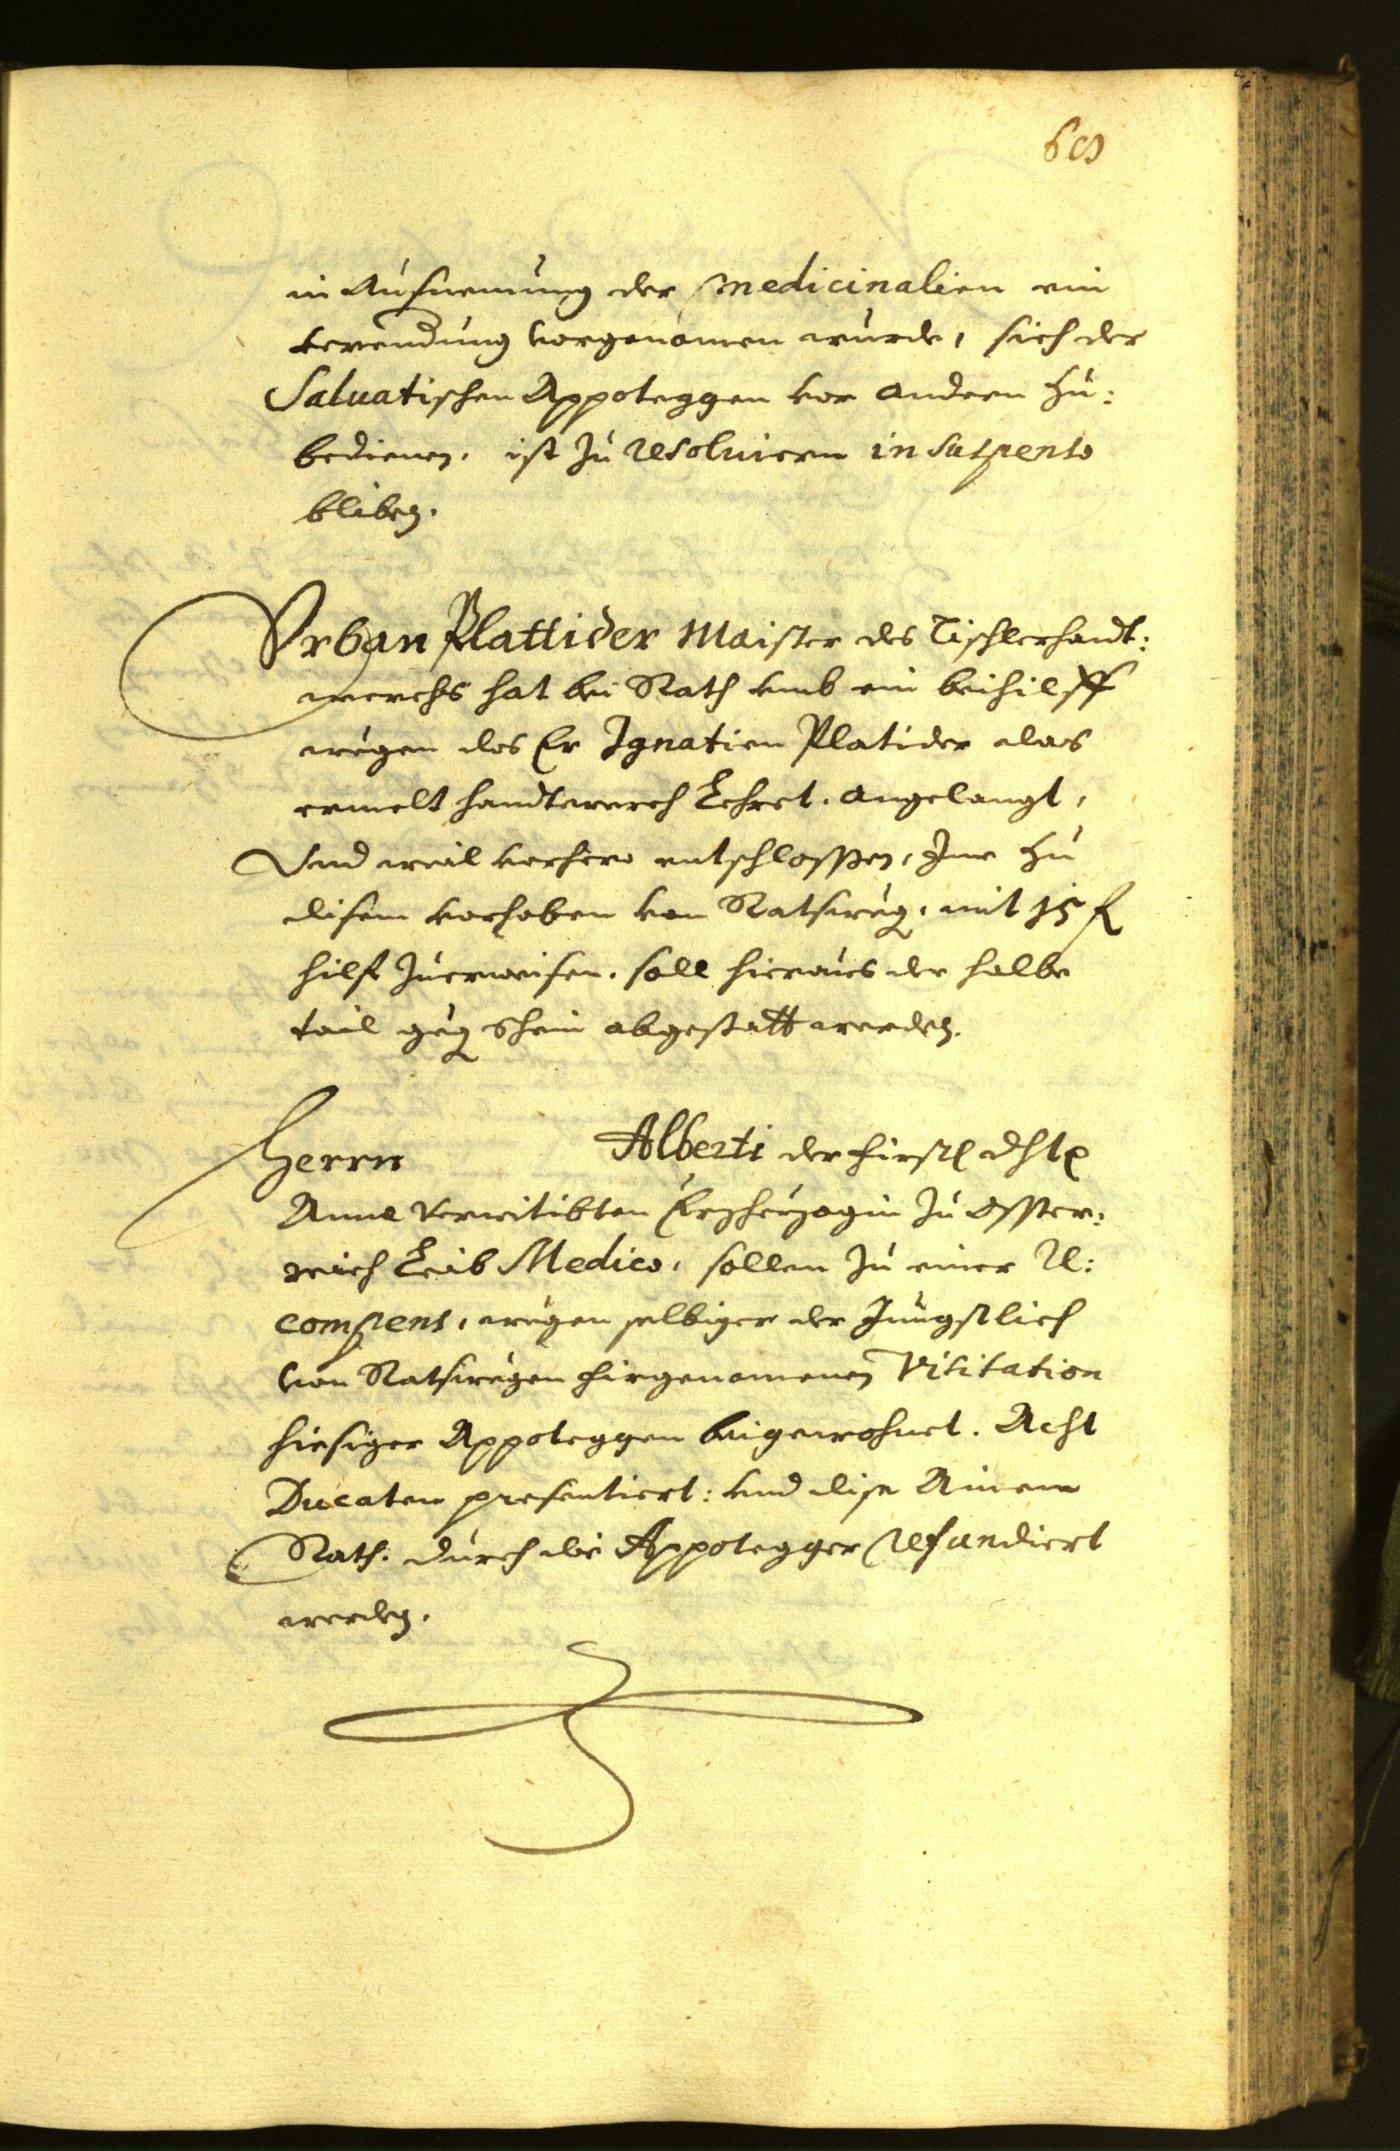 60
in Aufnemung der Medicinalien ein
verendung vorgenomen wurde, sich der
Saluatischen Appoteggen vor andern zu:
bedienen. ist zu resoluiern in suspenso
bliben.
Vrban Plattider Maister des Tischlerhandt:
werchs hat bei Rath vmb ein beihilff
wegen das Er Ignatien Platider das
ermelt handtwerch Lehret. angelangt,
Vnd weil vorhero entschlossen, Ime zu
disem vorhaben von Ratsweg. mit 15 f
hilff zuerweisen. soll hieraus der halbe
tail geg Schein abgestatt werden.
Herrn Alberti der Firstl dhtl
Anna Verwitibten Erzherzogin zu Osster:
reich Leib Medico, sollen zu einer Re:
compens, wegen selbiger der Jungstlich
von Ratswegen firgenomenen Visitation
hiesiger Appoteggen beigewohnet. Acht
Ducaten presentiert: vnd dise Ainem
Rath. durch die Appotegger refundiert
werden.